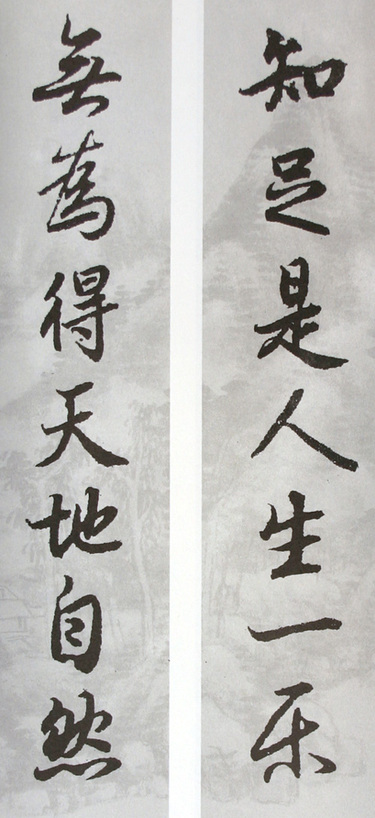 知足是人生一乐
無為得天地自然